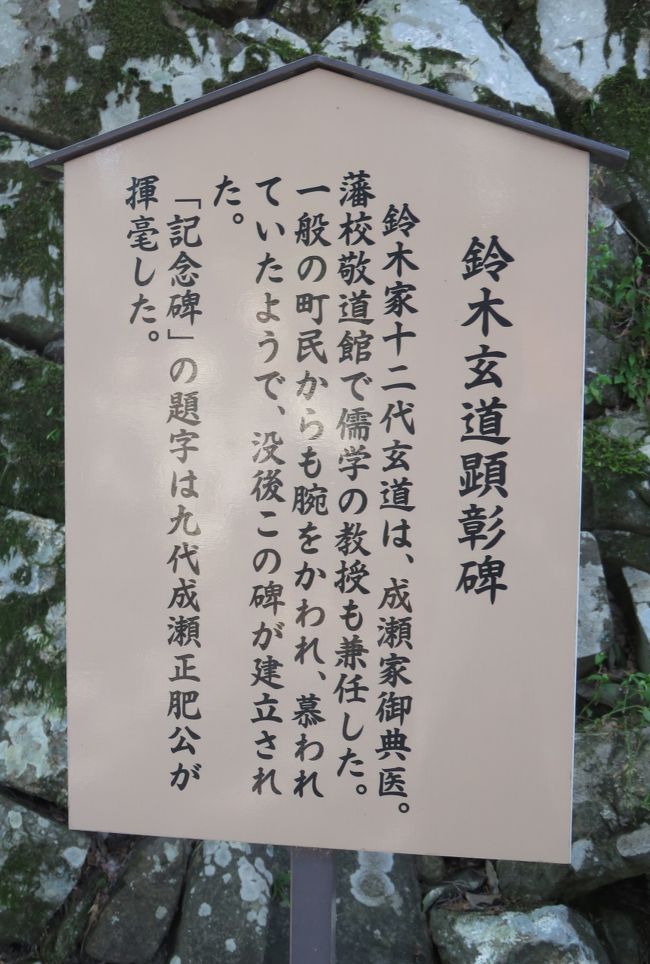 鈴木玄道顕彰碑
鈴木家十二代玄道は、成瀬家御典医。
藩校敬道館で儒学の教授も兼任した。
一般の町民からも腕をかわれ、慕われ
ていたようで、没後この碑が建立され
た。
「記念碑」の題字は九代成瀬正肥公が
揮毫した。